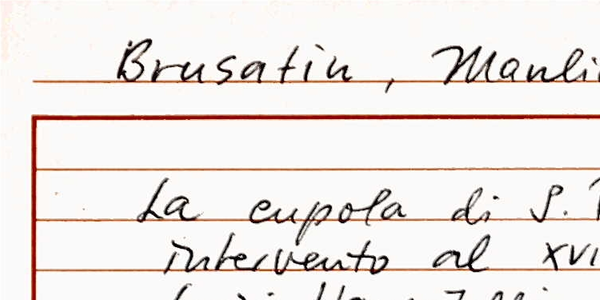 Brusatin, Manli
La cupola di S.
intervento al XVI